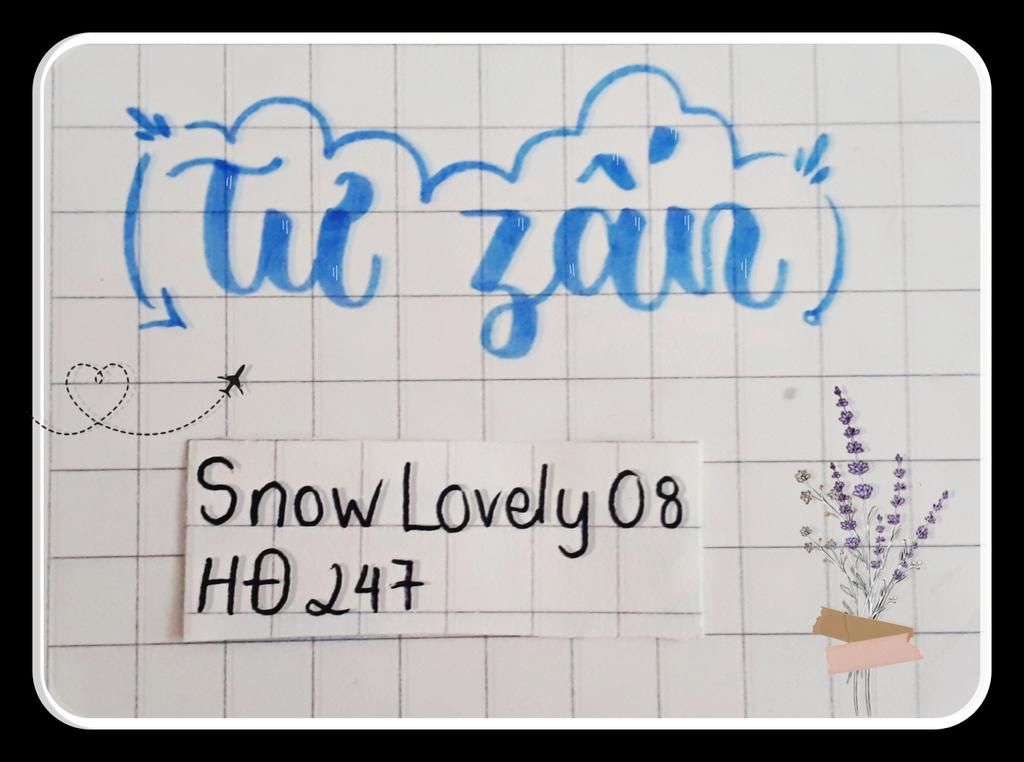 Tư zấn
Snow Lovely 08
HĐ 247